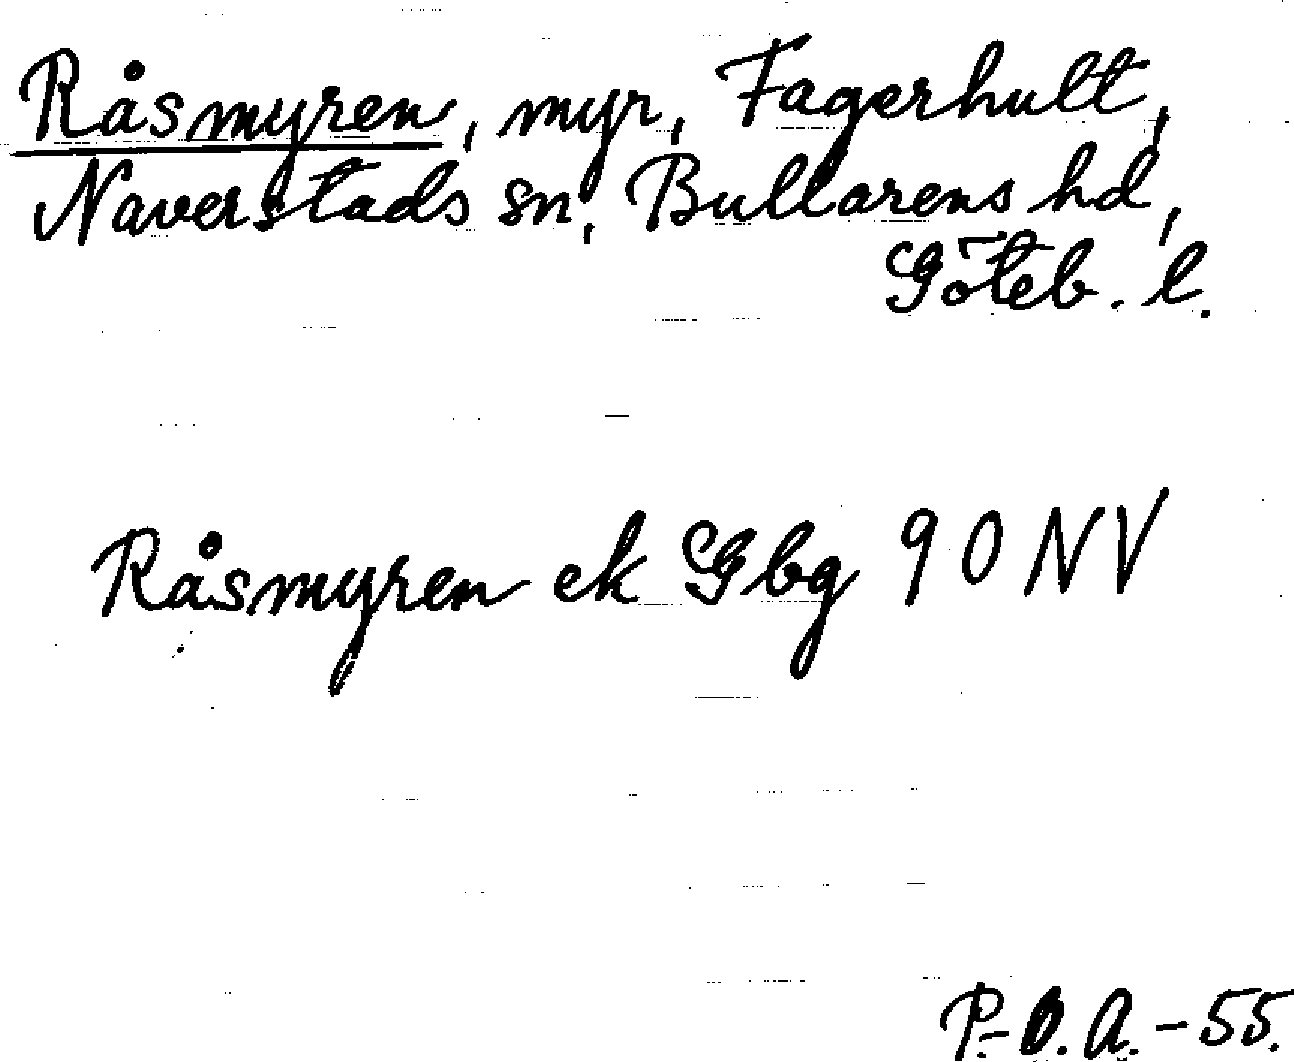 Råsmyren, myr, Fagerhult,
Naverstads sn, Bullarens hd,
Göteb. l.
Råsmyren ek Gbg 90 NV
P.-O.A.-55.